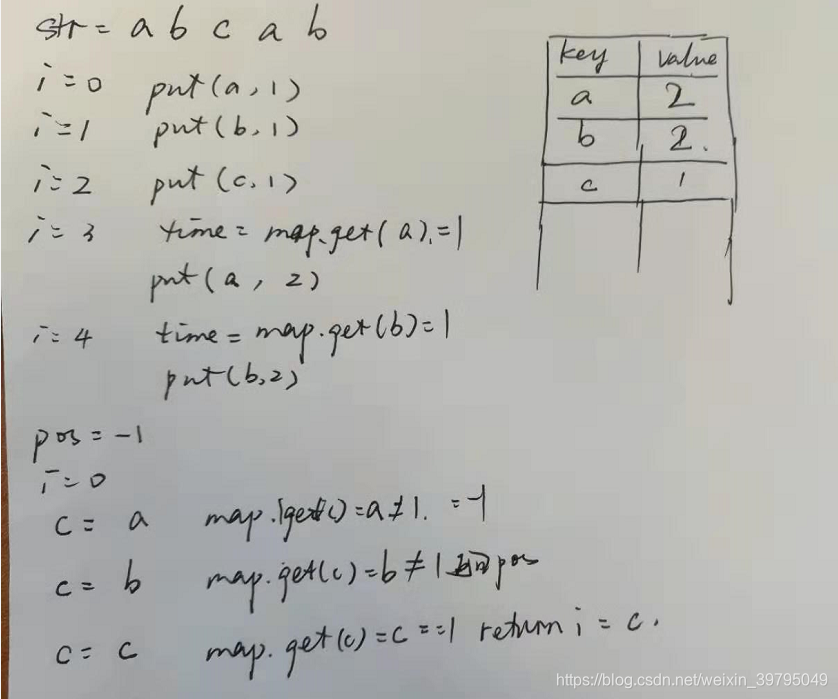 str = a b c a b
i=0 put(a,1)
i=1 put(b,1)
i=2 put(c,1)
i=3 time = map.get(a).=1
put(a, 2)
i=4 time = map.get(b)=1
put(b,2)
key value
a 2
b 2.
c 1
pos = -1
i=0
c = a map.get(c)=a≠1. =-1
c = b map.get(c)=b≠1 pos
c = c map.get(c)=c==1 return i = c.
https://blog.csdn.net/weixin_39795049